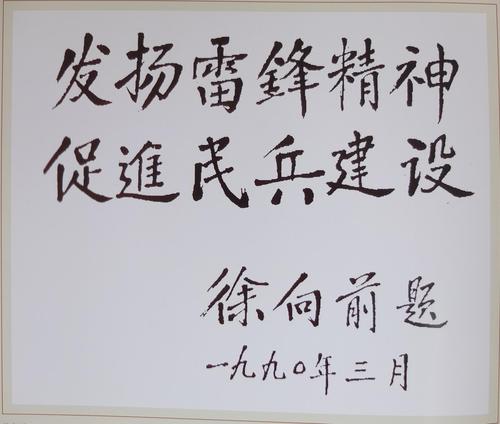 发扬雷鋒精神
促進民兵建设
徐向前 题
一九九〇年三月